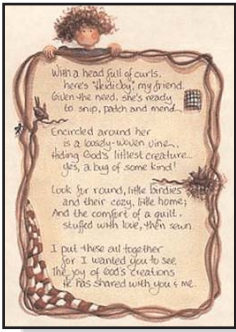 With a head full of curls,
here's "Heidiclay," my friend.
Given the need, she's ready
to snip, patch and mend...
Encircled around her
is a loosely-woven vine...
Hiding God's littlest creature...
yes, a bug of some kind!
Look for round, little birdies
and their cozy, little home;
And the comfort of a quilt...
stuffed with love, then sewn.
I put these all together
for I wanted you to see
The joy of God's creations
He has shared with you & me.